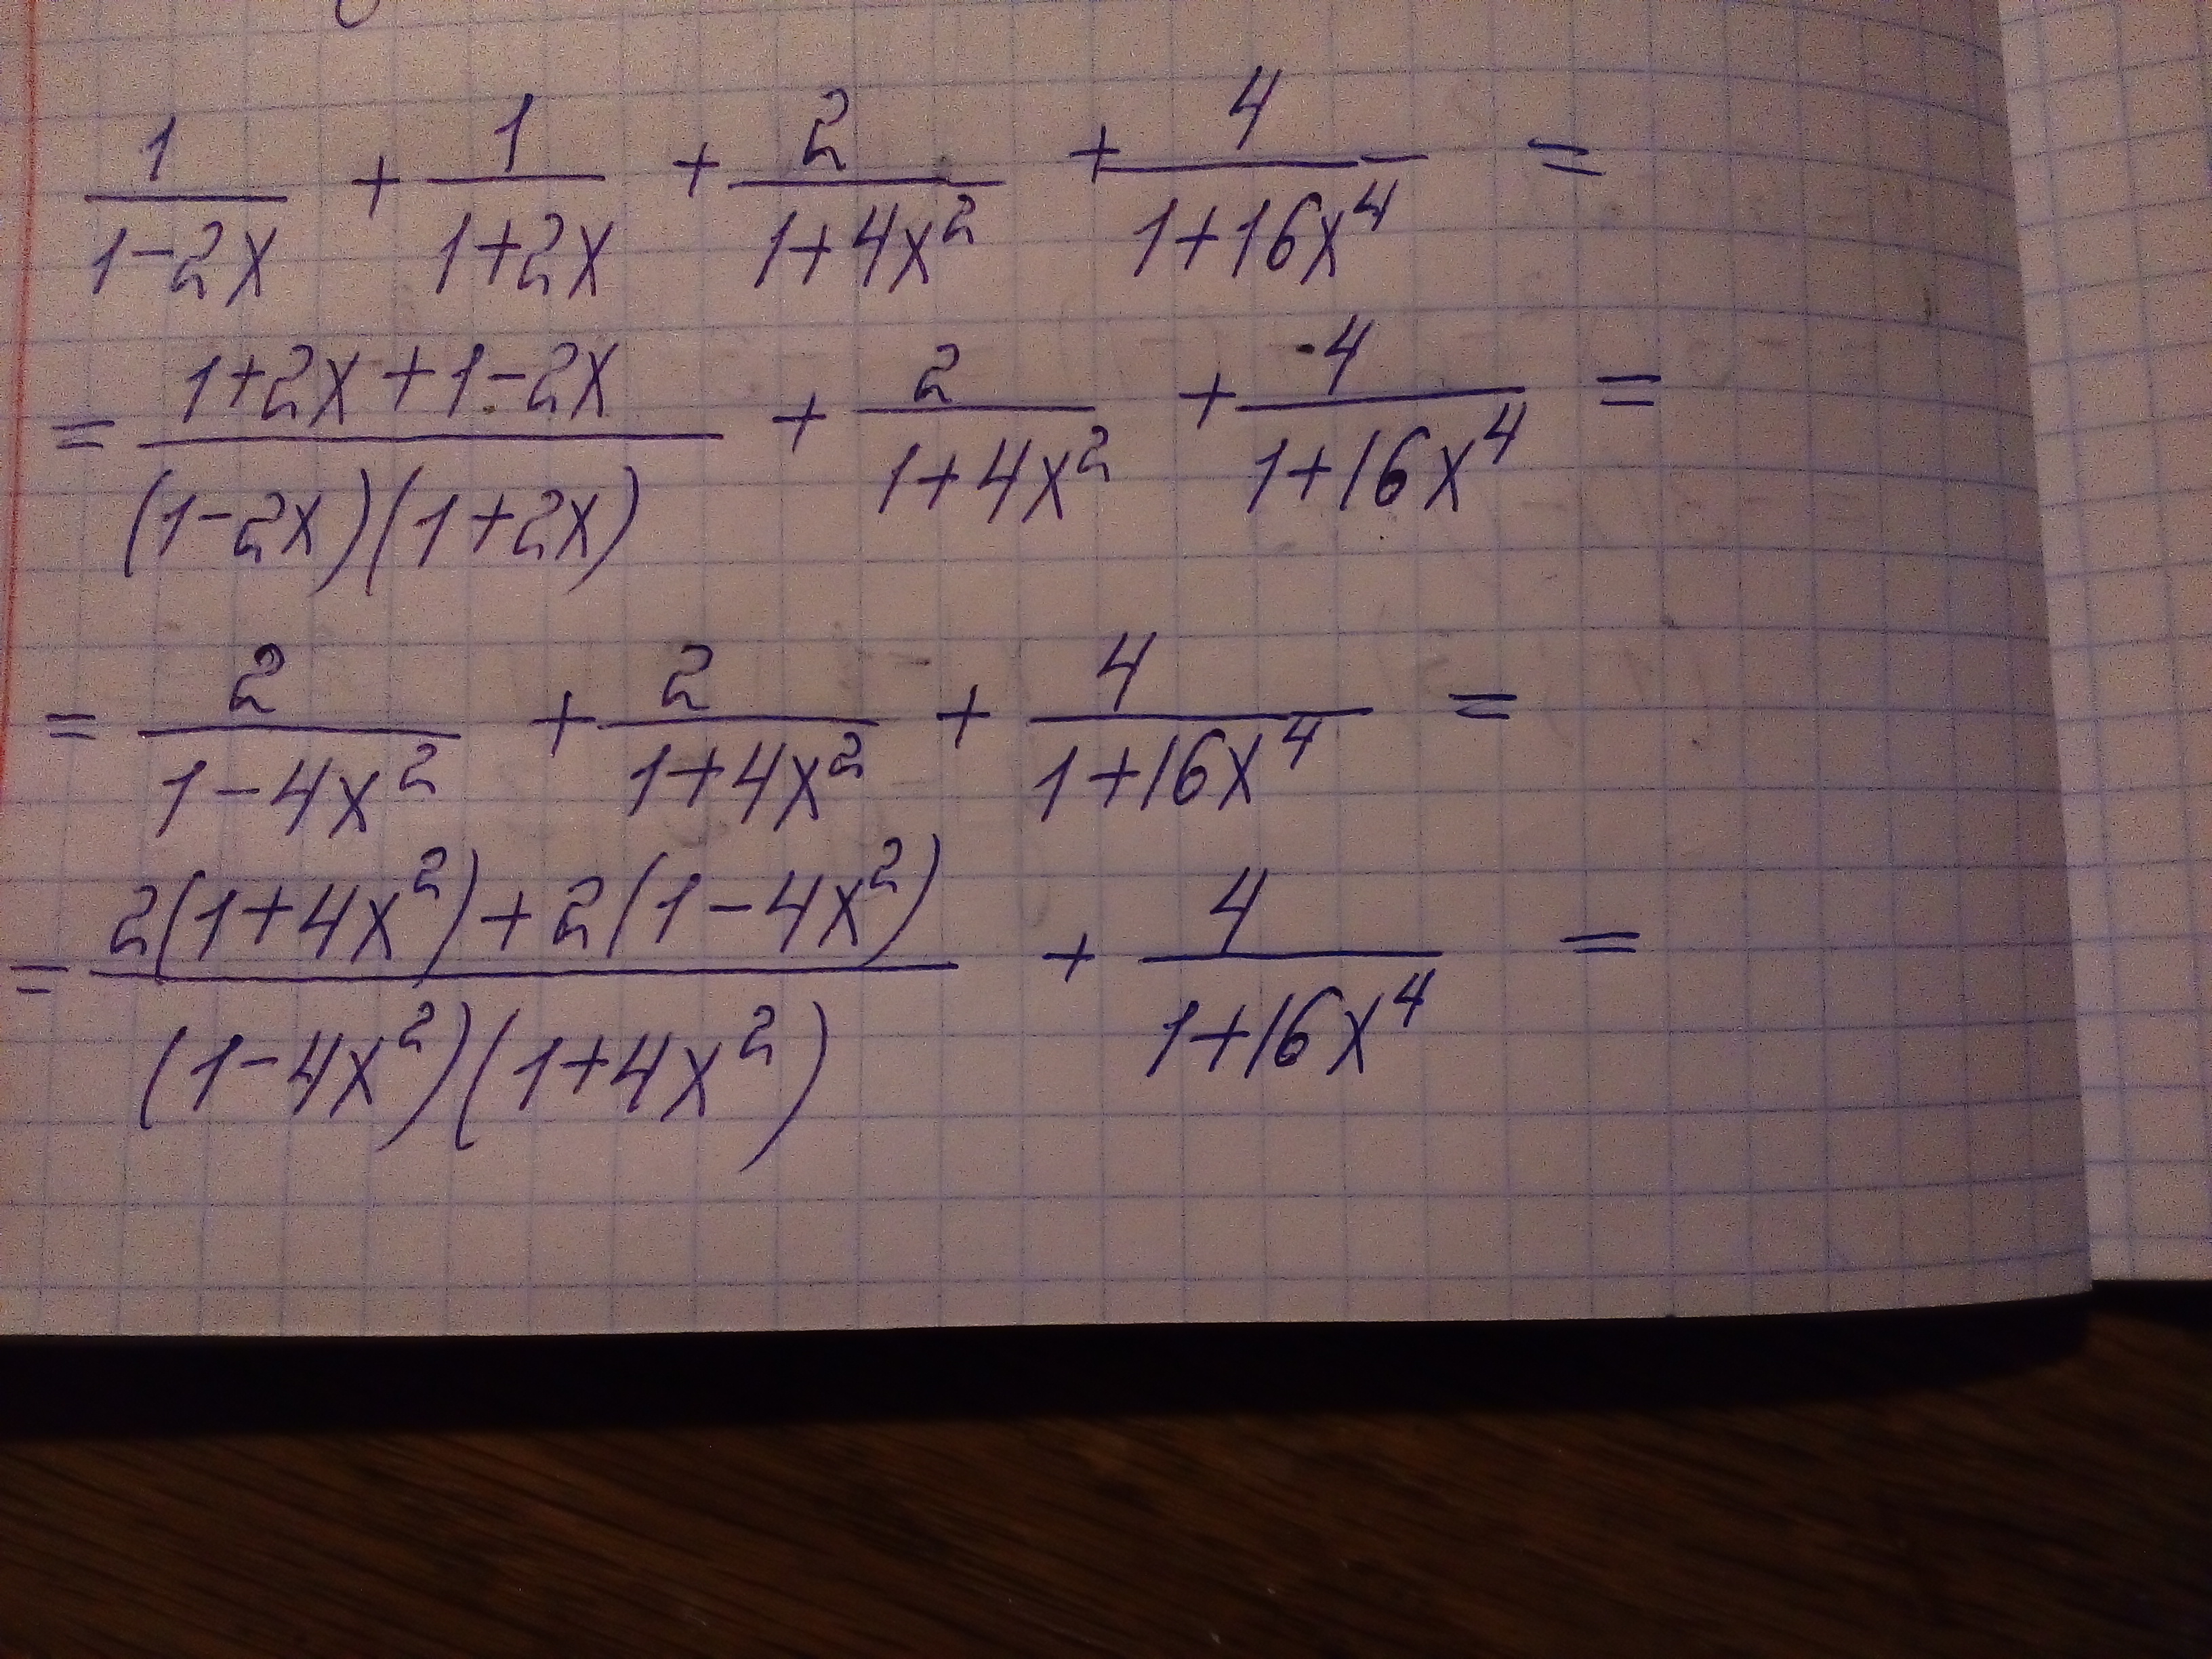 1/(1-2x) + 1/(1+2x) + 2/(1+4x²) + 4/(1+16x⁴) =
= (1+2x+1-2x)/((1-2x)(1+2x)) + 2/(1+4x²) + 4/(1+16x⁴) =
= 2/(1-4x²) + 2/(1+4x²) + 4/(1+16x⁴) =
= (2(1+4x²)+2(1-4x²))/((1-4x²)(1+4x²)) + 4/(1+16x⁴) =